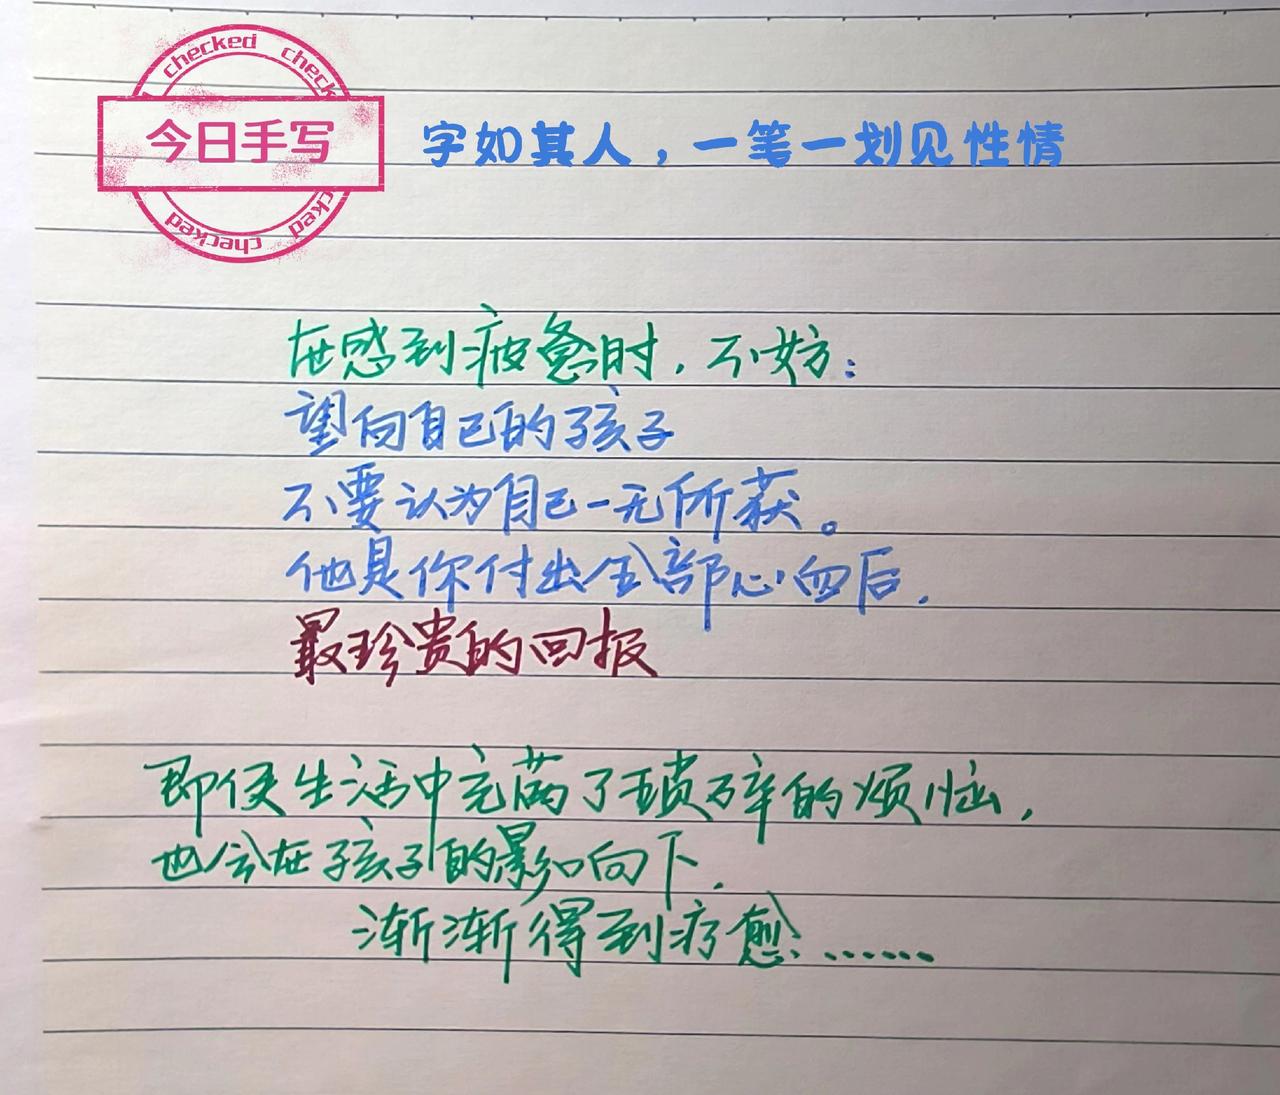 checked checked
今日手写
checked checked
字如其人，一笔一划见性情
在感到疲惫时，不妨：
望向自己的孩子
不要认为自己一无所获。
他是你付出全部心血后，
最珍贵的回报
即使生活中充满了琐碎的烦恼，
也会在孩子的影响下，
渐渐得到疗愈……